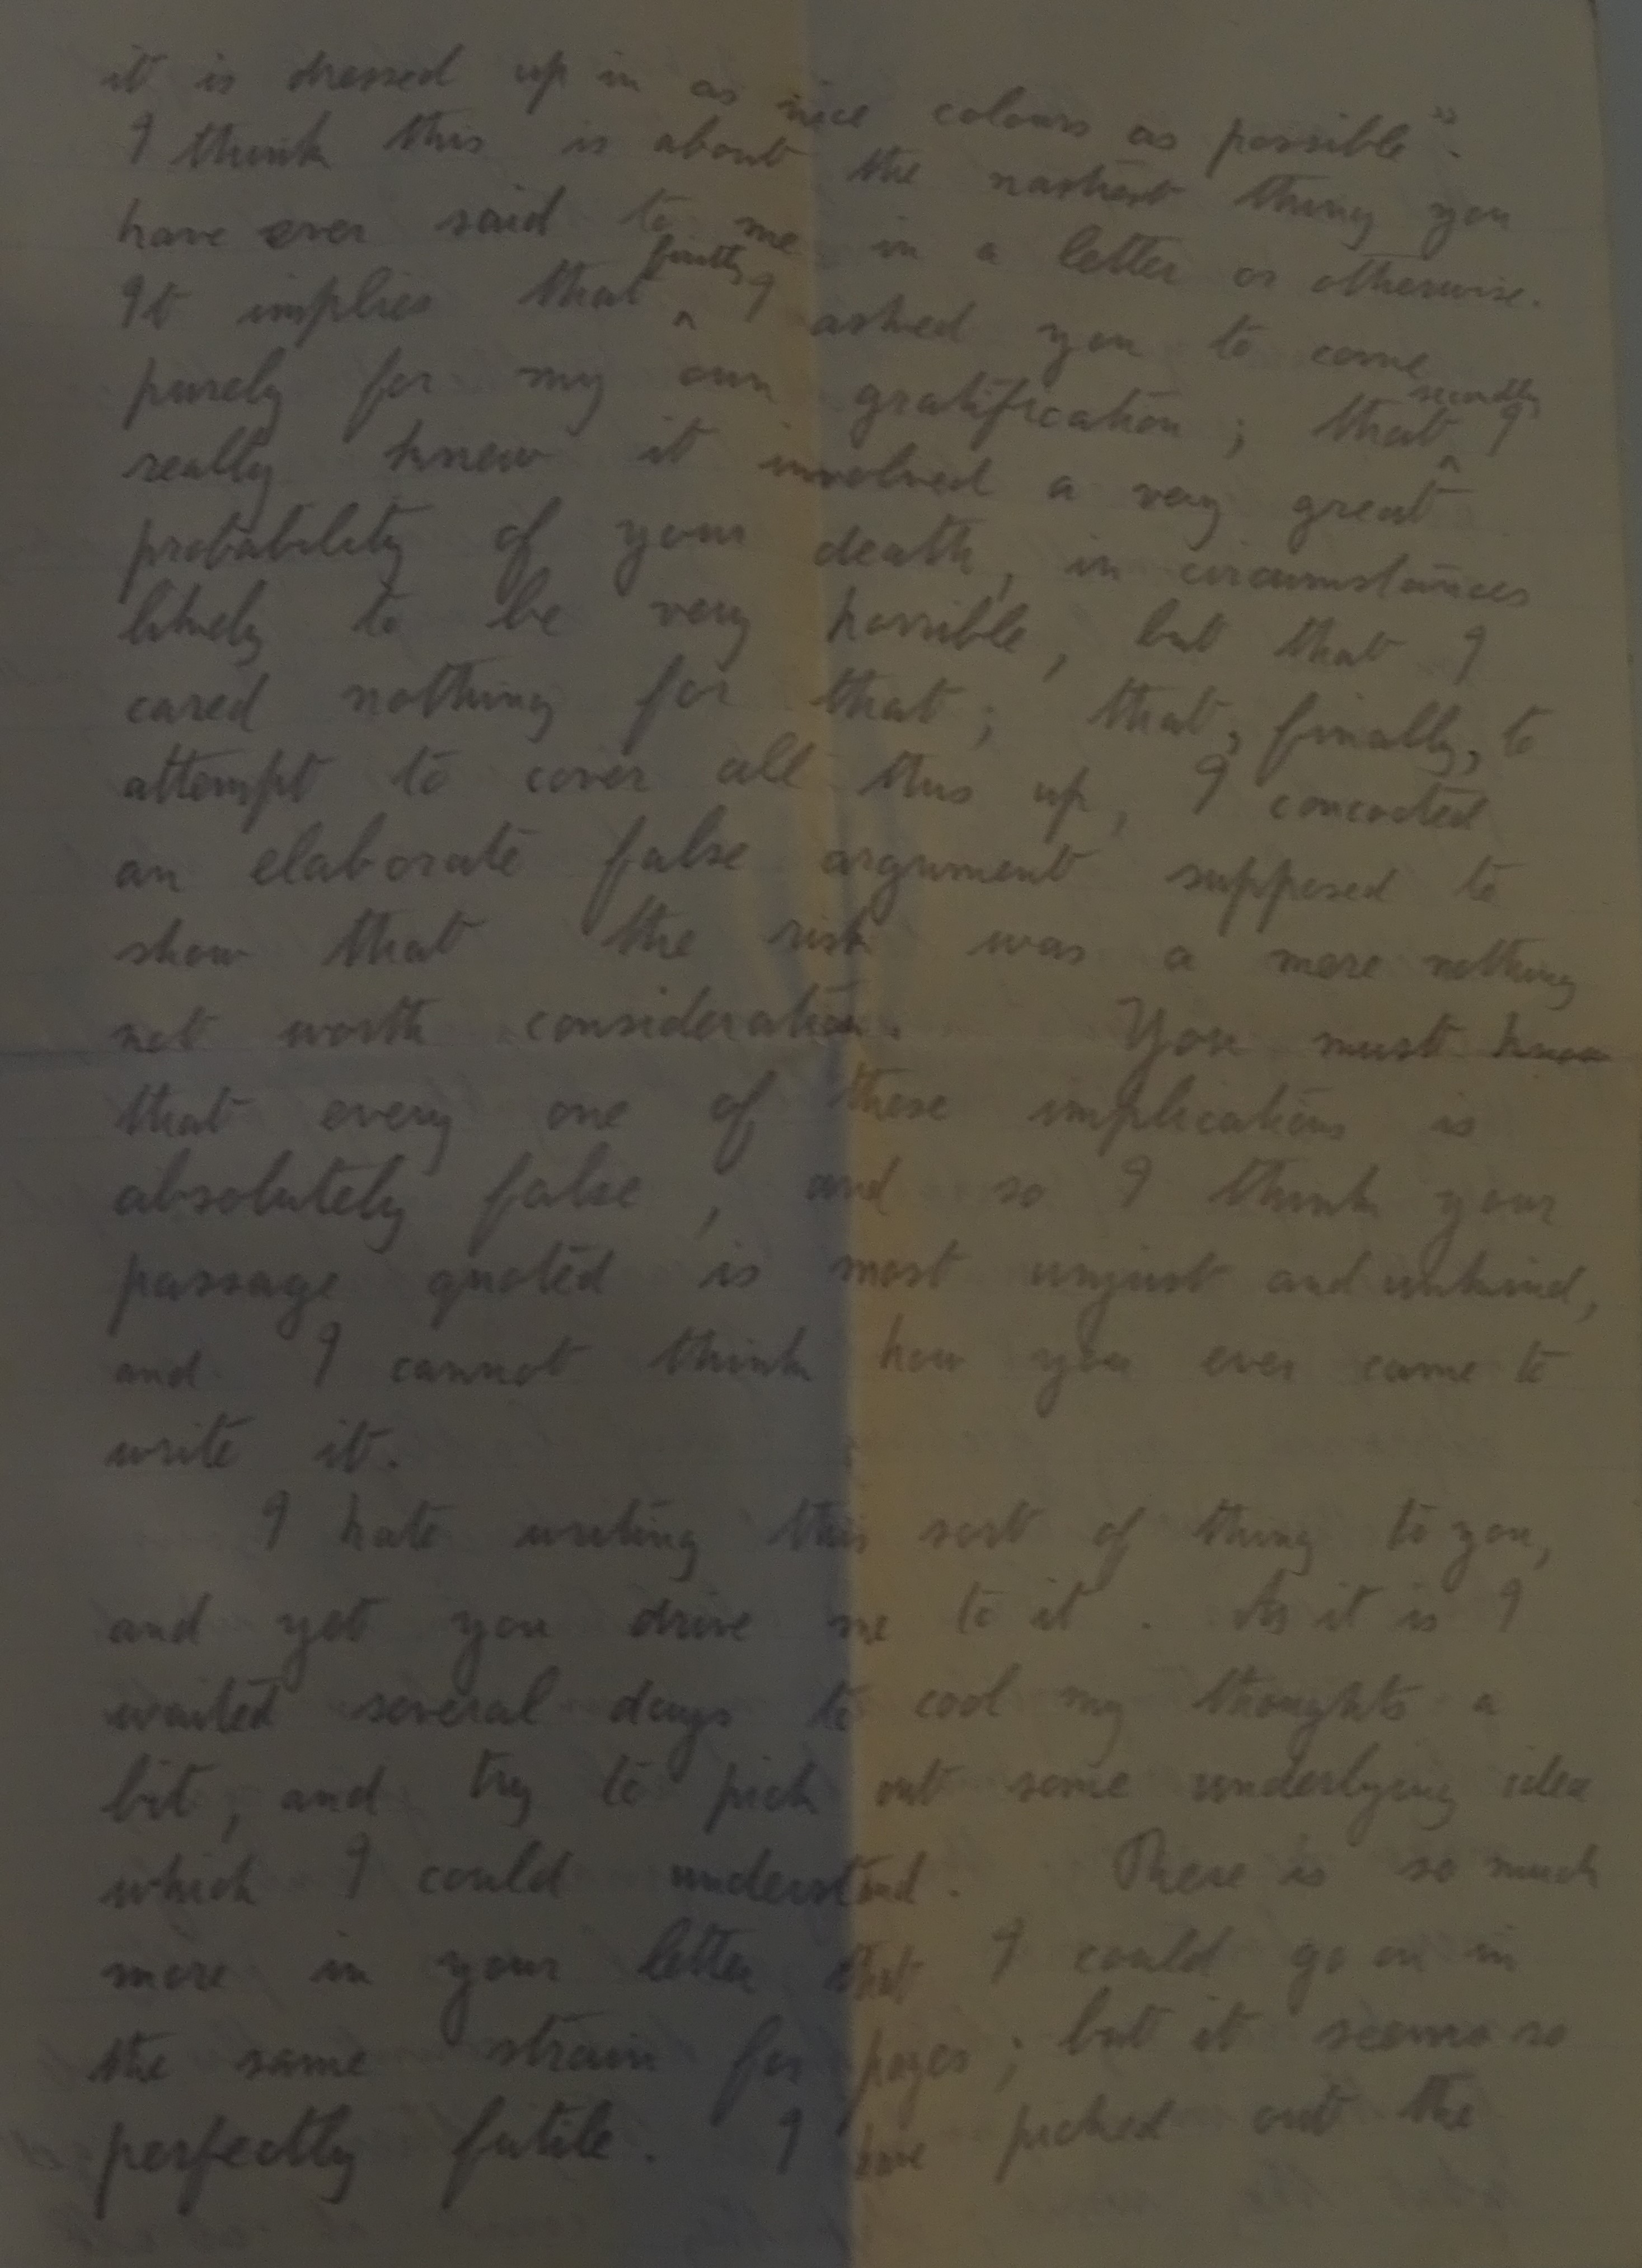 it is dressed up in as nice colours as possible".
I think this is about the nastiest thing you
have ever said to me in a letter or otherwise.
It implies that firstly I asked you to come
purely for my own gratification; that secondly I
really knew it involved a very great
probability of your death, in circumstances
likely to be very horrible, but that I
cared nothing for that; that, finally, to
attempt to cover all this up, I concocted
an elaborate false argument supposed to
show that the risk was a mere nothing
not worth consideration. You must know
that every one of these implications is
absolutely false, and so I think your
passage quoted is most unjust and unkind,
and I cannot think how you ever came to
write it.
I hate writing this sort of thing to you,
and yet you drive me to it. As it is I
waited several days to cool my thoughts a
bit, and try to pick out some underlying idea
which I could understand. There is so much
more in your letter that I could go on in
the same strain for pages; but it seems so
perfectly futile. I have picked out the